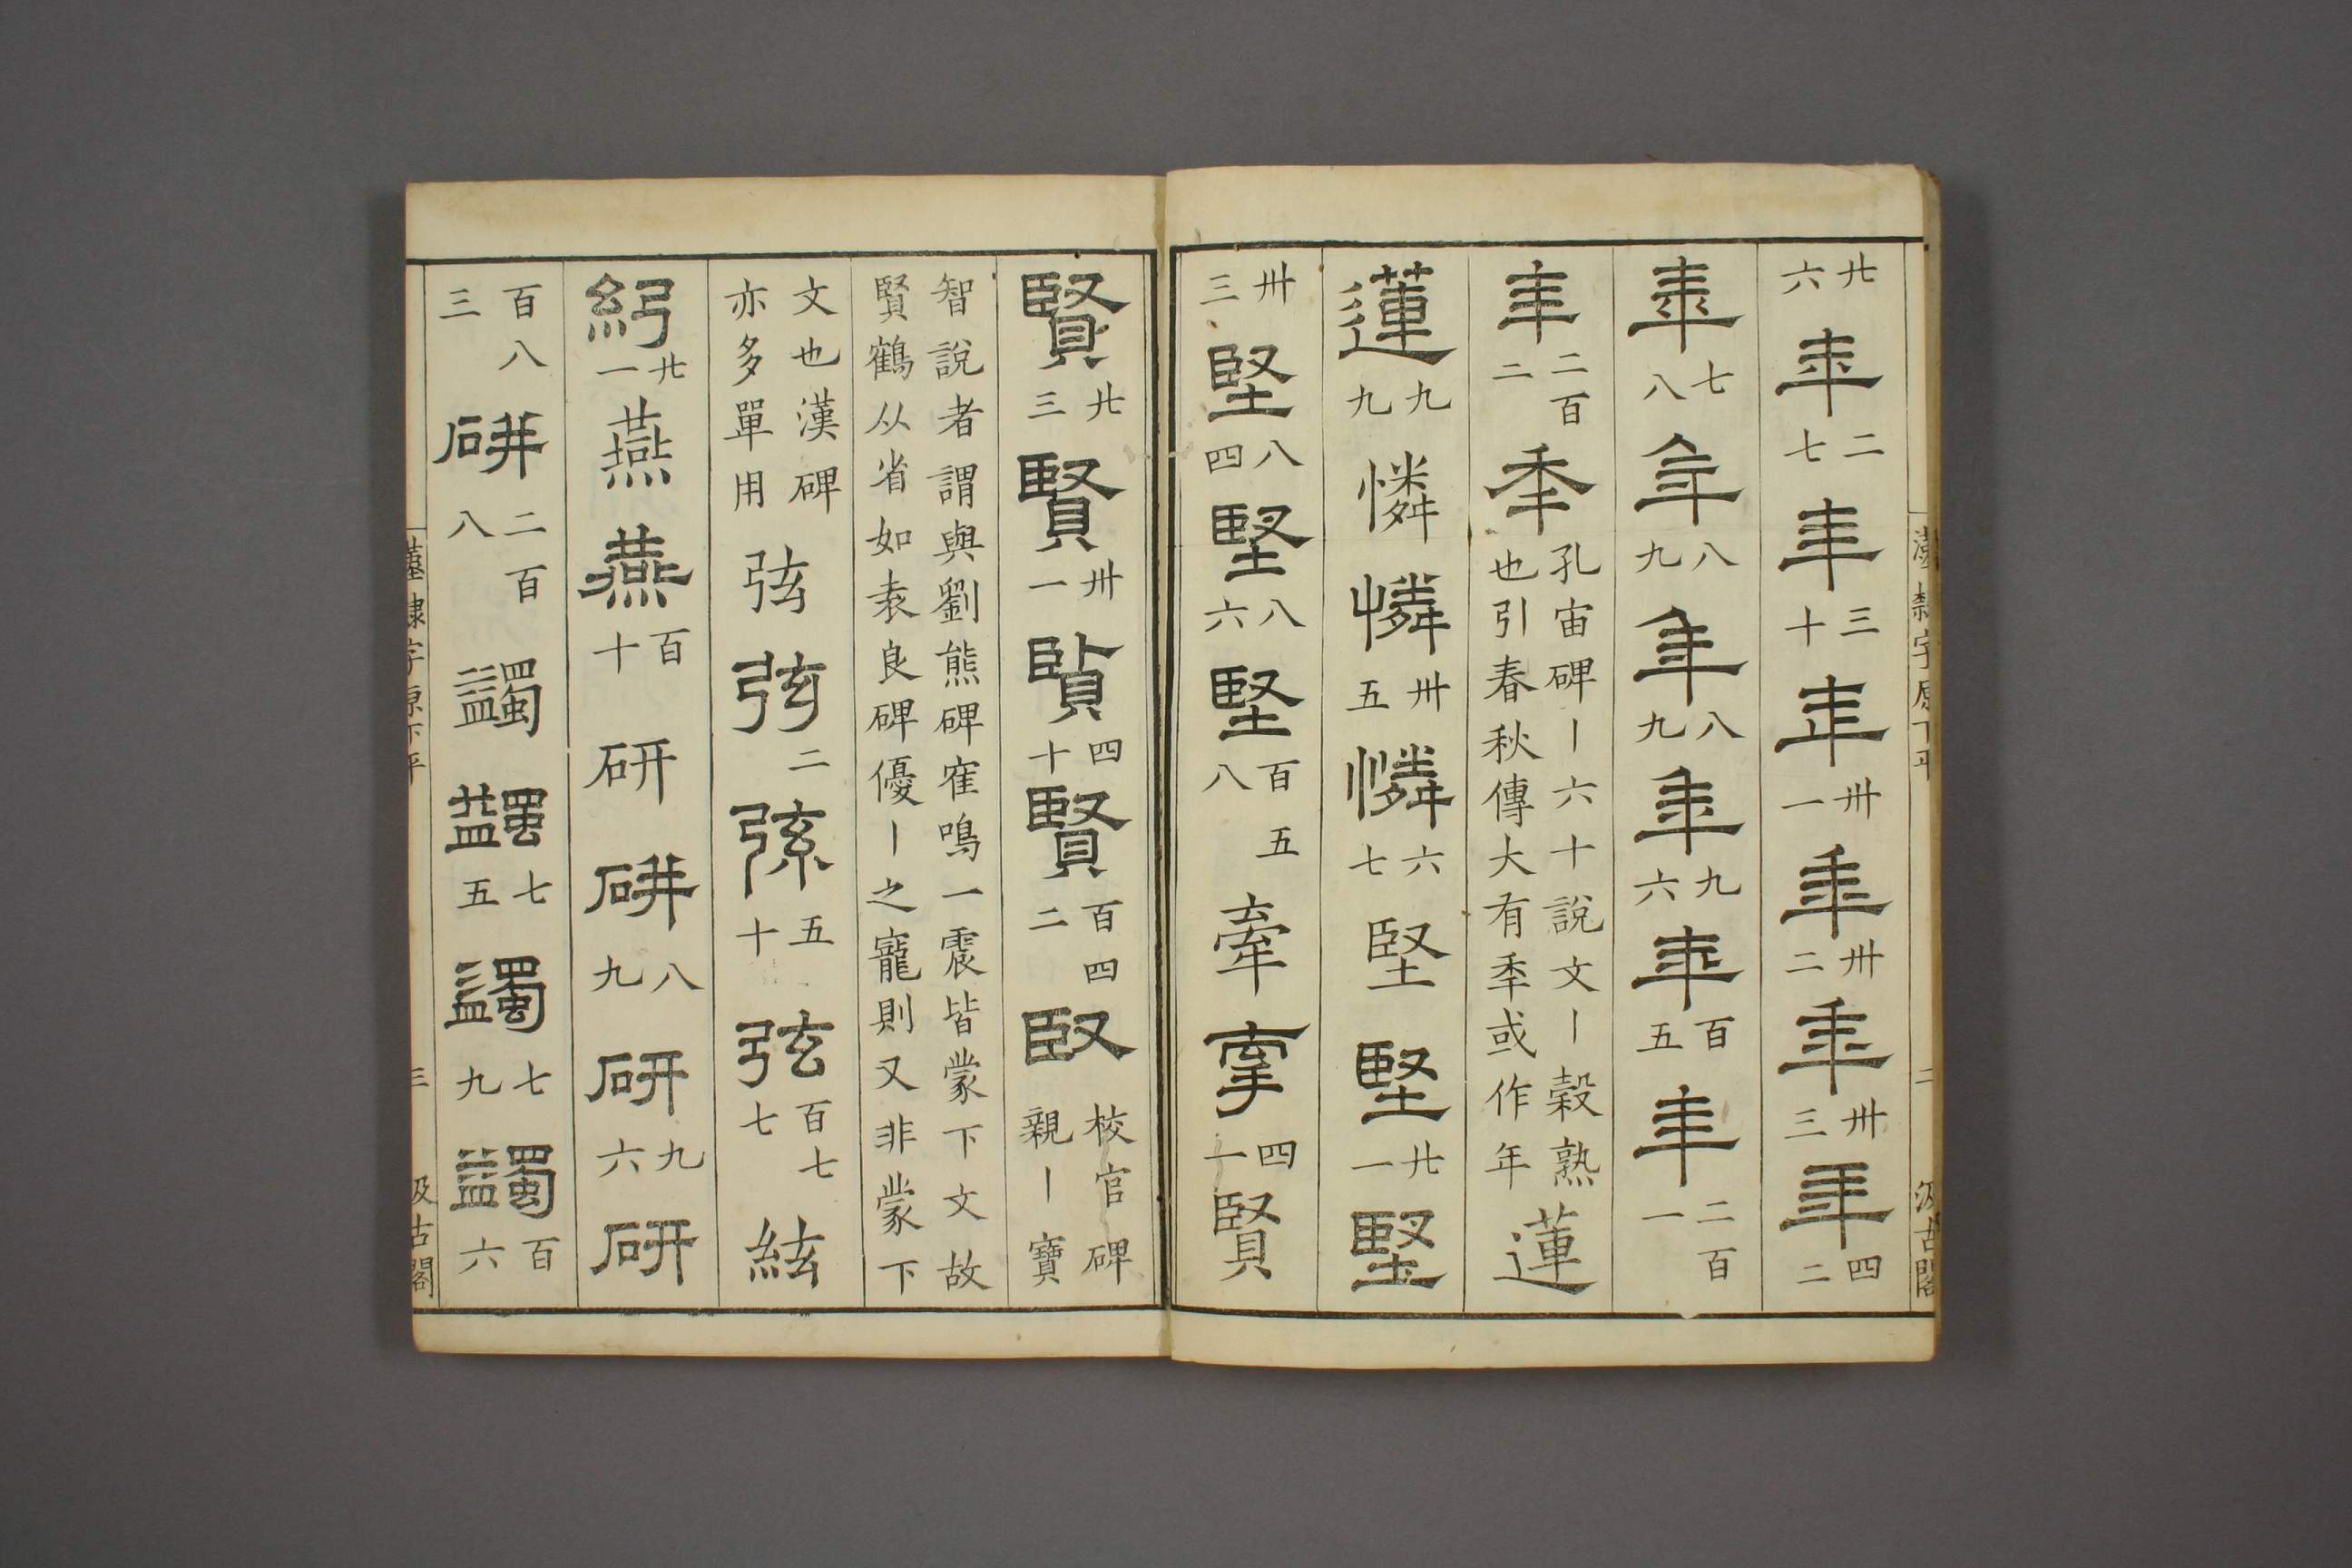 漢隸字原下平 二 汲古閣
廿六 年 二七 年 三十 年 卅一 年 卅二 年 卅三 年 四二
年 七八 年 八九 年 八九 年 九六 年 百五 年 二百一
年 二百二 秊 孔宙碑丨六十說文丨穀熟也引春秋傳大有秊或作年 蓮
蓮 九九 憐 憐 卅五 憐 六七 堅 堅 廿一 堅
卅三 堅 八四 堅 八六 堅 百五八 牽 牽 四一 賢
賢 廿三 賢 卅一 賢 四十 賢 百四二 臤 校官碑親丨寶
智說者謂與劉熊碑寉鳴一震皆蒙下文故
賢鶴从省如袁良碑優丨之寵則又非蒙下
文也漢碑亦多單用 弦 弦 二 弦 五十 弦 百七七 絃
絃 廿一 燕 燕 百十 研 研 八九 研 九六 研
百八三 研 二百八 蠲 蠲 七五 蠲 七九 蠲 百六
漢隸字原下平 三 汲古閣